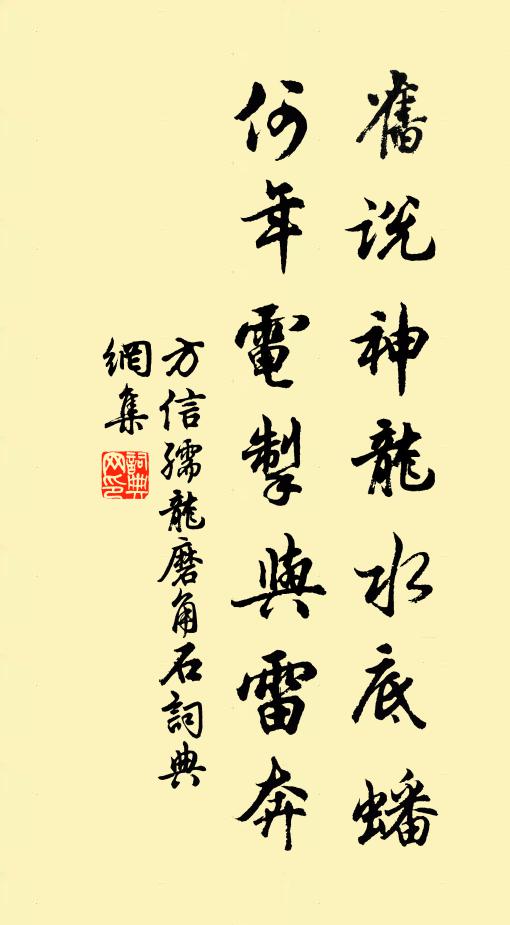 舊說神龍水底蟠
何年電掣與雷奔
方信孺龍磨角石詞典
網集
詞典網印